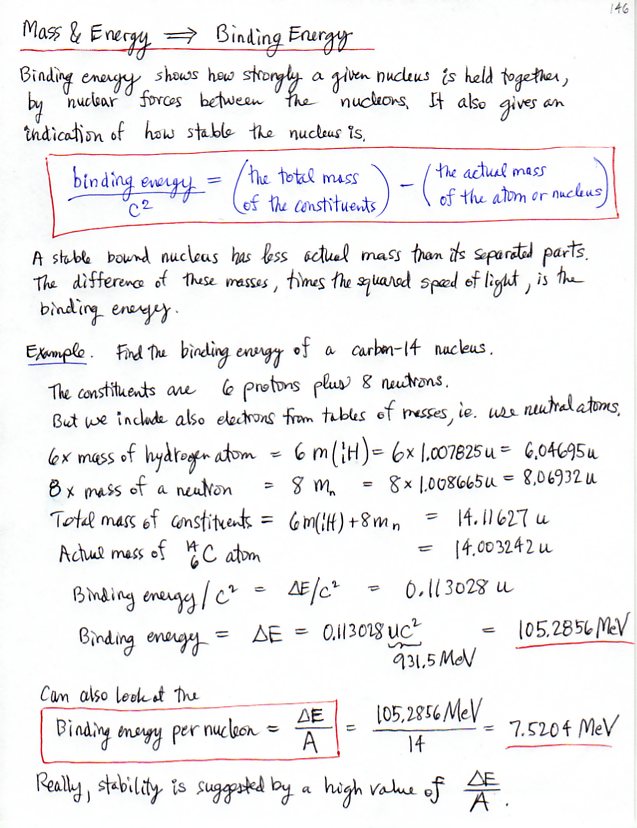 146
Mass & Energy ⟹ Binding Energy
Binding energy shows how strongly a given nucleus is held together,
by nuclear forces between the nucleons. It also gives an
indication of how stable the nucleus is.
binding energy / c² = (the total mass of the constituents) − (the actual mass of the atom or nucleus)
A stable bound nucleus has less actual mass than its separated parts.
The difference of these masses, times the squared speed of light, is the
binding energy.
Example. Find the binding energy of a carbon-14 nucleus.
The constituents are 6 protons plus 8 neutrons.
But we include also electrons from tables of masses, ie. use neutral atoms.
6x mass of hydrogen atom = 6 m(¹₁H) = 6 × 1.007825u = 6.04695u
8 x mass of a neutron = 8 mₙ = 8 × 1.008665u = 8.06932u
Total mass of constituents = 6m(¹₁H) + 8mₙ = 14.11627 u
Actual mass of ¹⁴₆C atom = 14.003242 u
Binding energy / c² = ΔE/c² = 0.113028 u
Binding energy = ΔE = 0.113028 uc² = 105.2856 MeV
931.5 MeV
Can also look at the
Binding energy per nucleon = ΔE/A = 105.2856 MeV/14 = 7.5204 MeV
Really, stability is suggested by a high value of ΔE/A.